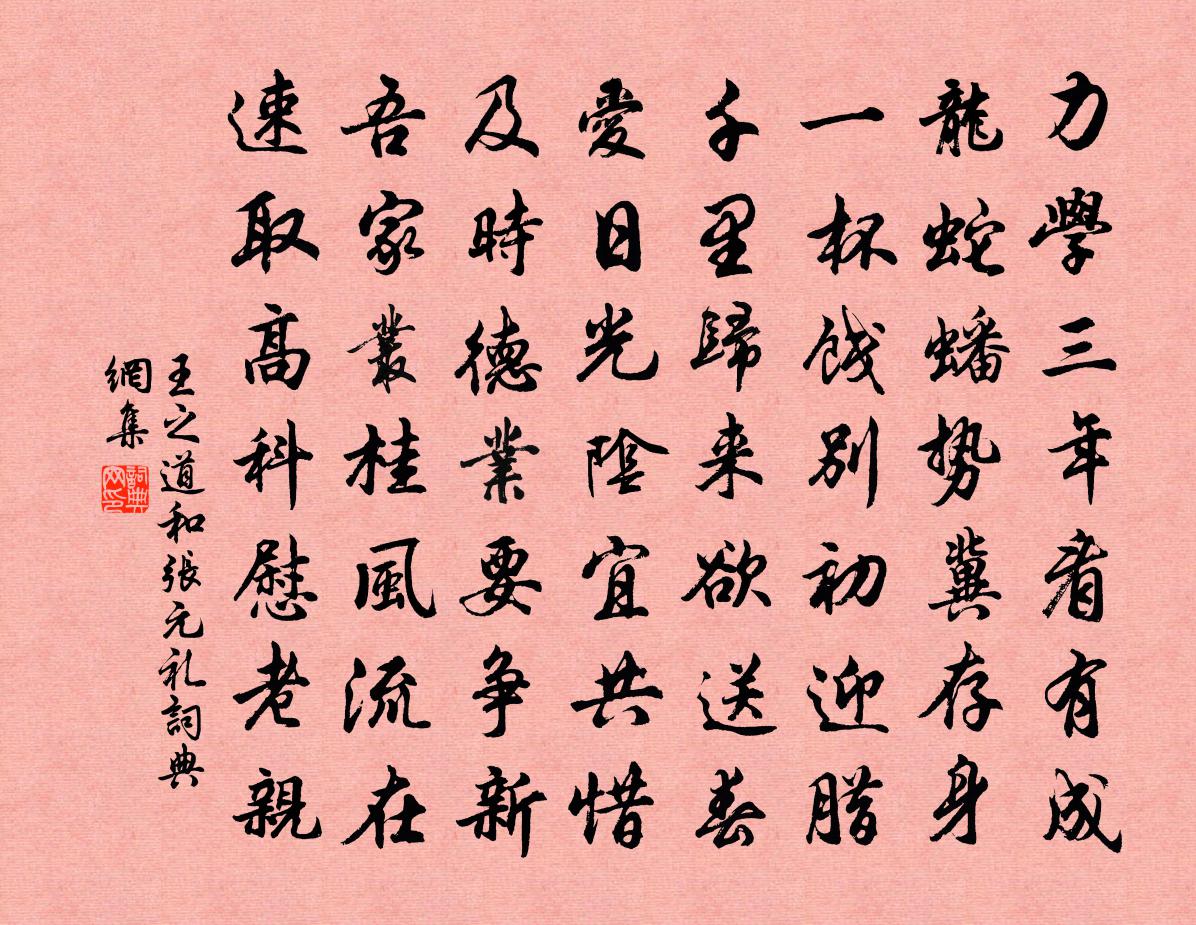 力學三年看有成
龍蛇蟠勢冀存身
一杯餞別初迎腊
千里歸来欲送春
愛日光陰宜共惜
及時德業要爭新
吾家叢桂風流在
速取高科慰老親
王之道和張元礼詞典
網集
詞典
网印